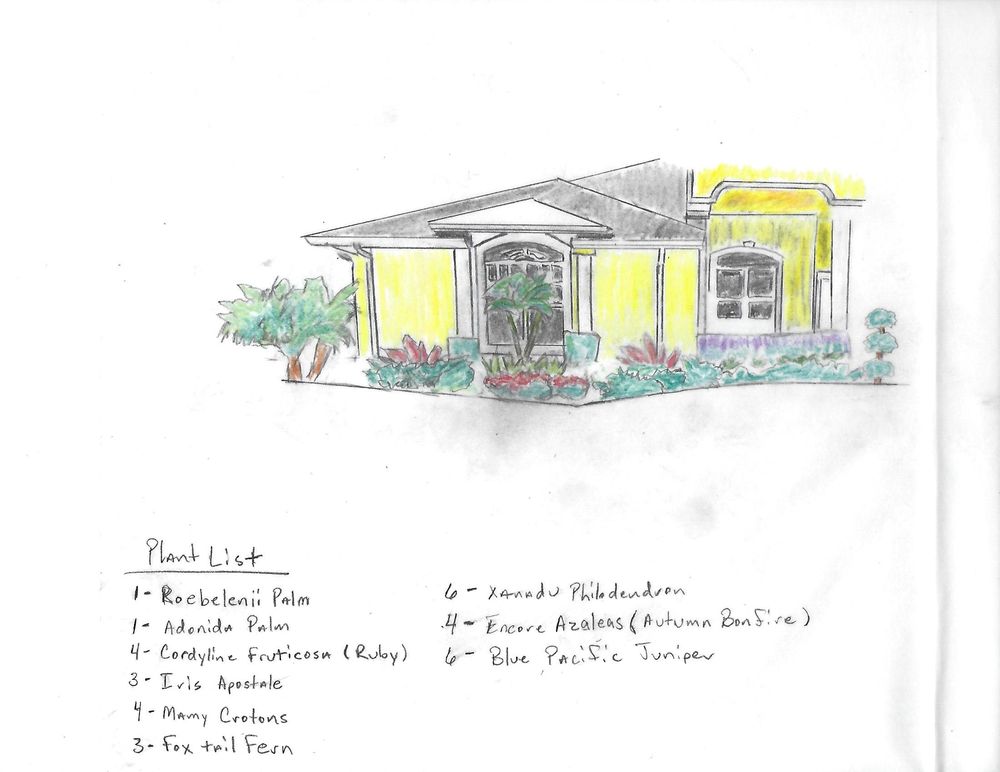 Plant List
1 - Roebelenii Palm
1 - Adonida Palm
4 - Cordyline Fruticosa (Ruby)
3 - Iris Apostale
4 - Mamy Crotons
3 - Fox tail Fern
6 - Xanadu Philodendron
4 - Encore Azaleas (Autumn Bonfire)
6 - Blue Pacific Juniper